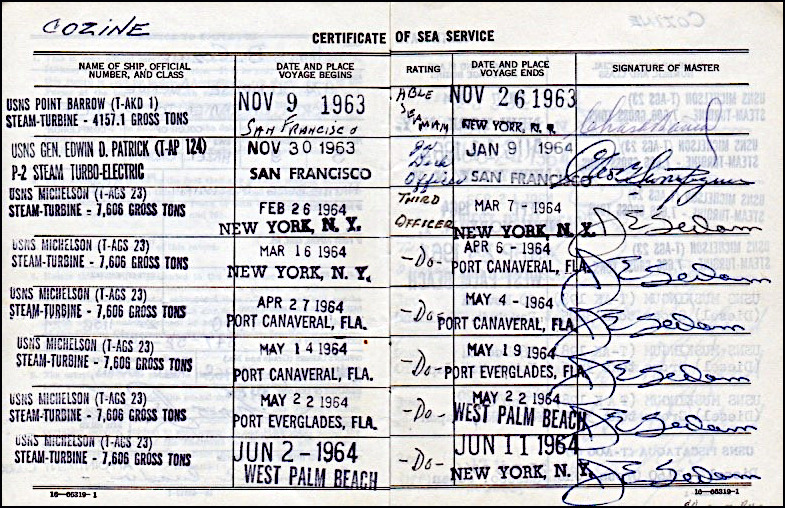 COZINE
CERTIFICATE OF SEA SERVICE
NAME OF SHIP, OFFICIAL NUMBER, AND CLASS
DATE AND PLACE VOYAGE BEGINS
RATING
DATE AND PLACE VOYAGE ENDS
SIGNATURE OF MASTER
USNS POINT BARROW (T-AKD 1)
STEAM-TURBINE - 4157.1 GROSS TONS
NOV 9 1963
SAN FRANCISCO
ABLE
SEAMAN
NOV 26 1963
NEW YORK, N. Y.
USNS GEN. EDWIN D. PATRICK (T-AP 124)
P-2 STEAM TURBO-ELECTRIC
NOV 30 1963
SAN FRANCISCO
Jr Deck
Officer
JAN 9 1964
SAN FRANCISCO
USNS MICHELSON (T-AGS 23)
STEAM-TURBINE - 7,606 GROSS TONS
FEB 26 1964
NEW YORK, N. Y.
THIRD
OFFICER
MAR 7 - 1964
NEW YORK, N. Y.
J E Sedam
USNS MICHELSON (T-AGS 23)
STEAM-TURBINE - 7,606 GROSS TONS
MAR 16 1964
NEW YORK, N. Y.
-Do-
APR 6 - 1964
PORT CANAVERAL, FLA.
J E Sedam
USNS MICHELSON (T-AGS 23)
STEAM-TURBINE - 7,606 GROSS TONS
APR 27 1964
PORT CANAVERAL, FLA.
-Do-
MAY 4 - 1964
PORT CANAVERAL, FLA.
J E Sedam
USNS MICHELSON (T-AGS 23)
STEAM-TURBINE - 7,606 GROSS TONS
MAY 14 1964
PORT CANAVERAL, FLA.
-Do-
MAY 19 1964
PORT EVERGLADES, FLA.
J E Sedam
USNS MICHELSON (T-AGS 23)
STEAM-TURBINE - 7,606 GROSS TONS
MAY 22 1964
PORT EVERGLADES, FLA.
-Do-
MAY 22 1964
WEST PALM BEACH
J E Sedam
USNS MICHELSON (T-AGS 23)
STEAM-TURBINE - 7,606 GROSS TONS
JUN 2 - 1964
WEST PALM BEACH
-Do-
JUN 11 1964
NEW YORK, N. Y.
J E Sedam
16-06319-1
16-06319-1